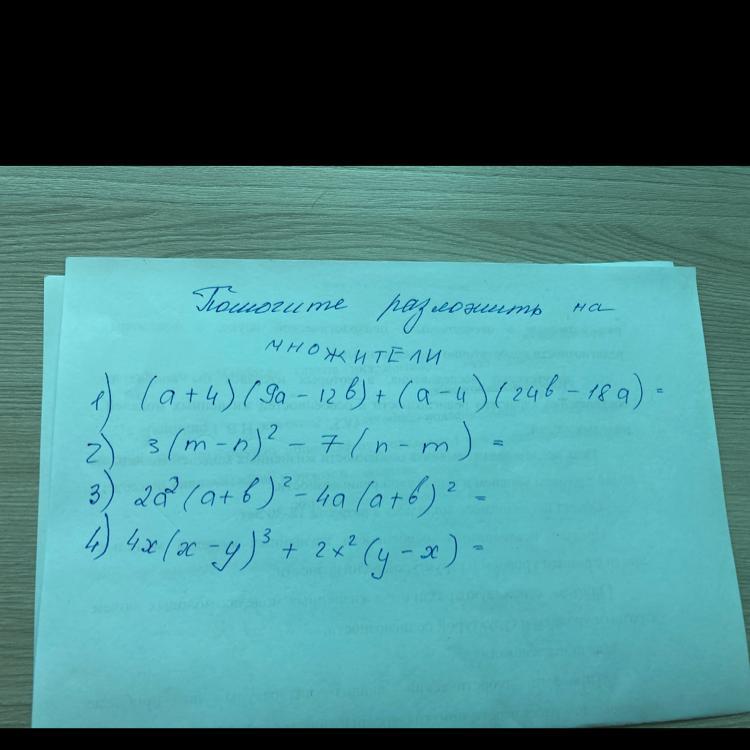 Помогите разложить на
множители
1) (a+4)(9a-12b)+(a-4)(24b-18a)=
2) 3(m-n)²-7(n-m)=
3) 2a²(a+b)²-4a(a+b)²=
4) 4x(x-y)³+2x²(y-x)=